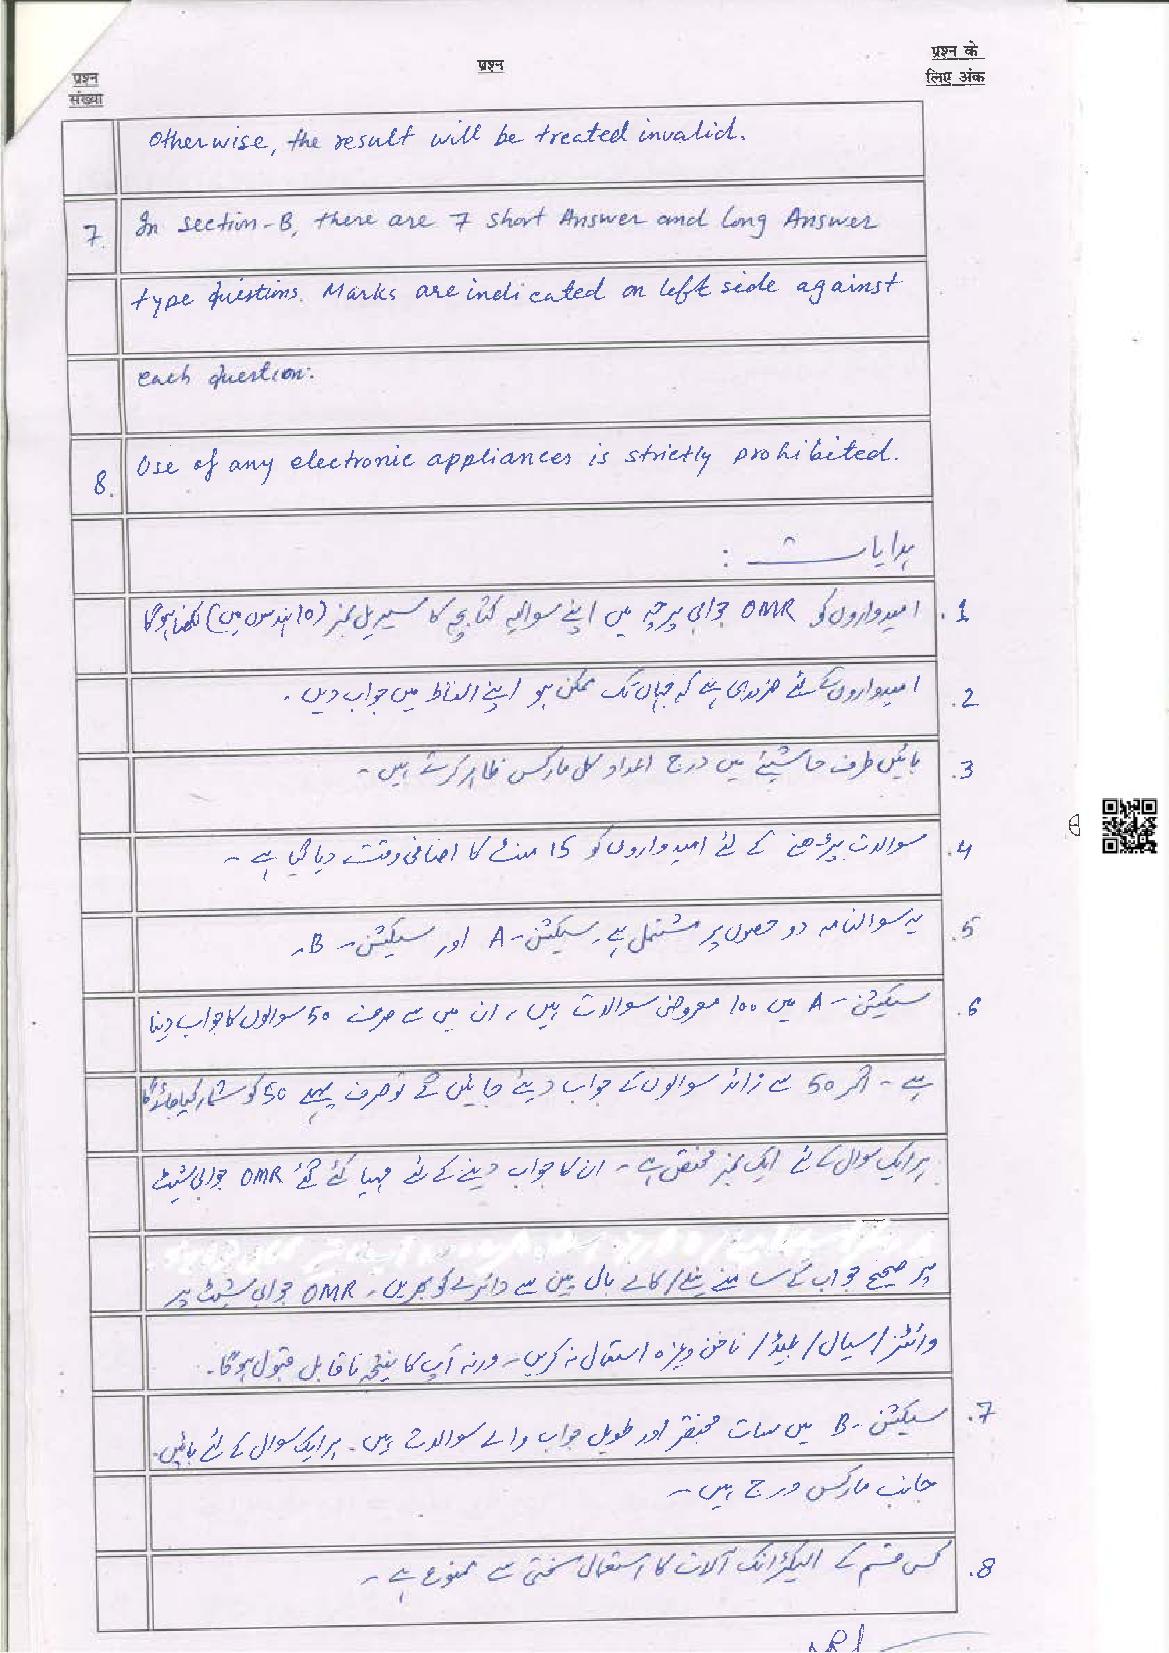 प्रश्न संख्या
प्रश्न
प्रश्न के लिए अंक
Otherwise, the result will be treated invalid.
7. In section-B, there are 7 short Answer and long Answer
type questions. Marks are indicated on left side against
each question.
8. Use of any electronic appliances is strictly prohibited.
ہدایات :
1. امیدواروں کو OMR جوابی پرچہ میں اپنے سوالیہ کتابچہ کا سیریل نمبر (10 ہندسوں میں) لکھنا ہوگا
2. امیدواروں کے لئے ضروری ہے کہ جہاں تک ممکن ہو اپنے الفاظ میں جواب دیں ۔
3. بائیں طرف حاشیئے میں درج اعداد کل مارکس ظاہر کرتے ہیں ۔
4. سوالات پڑھنے کے لئے امیدواروں کو 15 منٹ کا اضافی وقت دیا گیا ہے ۔
5. یہ سوالنامہ دو حصوں پر مشتمل ہے۔ سیکشن - A اور سیکشن - B ۔
6. سیکشن - A میں 100 معروضی سوالات ہیں ، ان میں سے صرف 50 سوالوں کا جواب دینا
ہے ۔ اگر 50 سے زائد سوالوں کے جواب دیئے جائیں گے تو صرف پہلے 50 کو شمار کیا جائے گا
ہر ایک سوال کے لئے ایک نمبر مختص ہے ۔ ان کا جواب دینے کے لئے مہیا کئے گئے OMR جوابی شیٹ
پر صحیح جواب کے سامنے نیلے/کالے بال پین سے دائرے کو بھریں ۔ OMR جوابی شیٹ پر
وائٹنر/سیال/بلیڈ/ناخن وغیرہ استعمال نہ کریں ۔ ورنہ آپ کا نتیجہ ناقابل قبول ہوگا ۔
7. سیکشن - B میں سات مختصر اور طویل جواب والے سوالات ہیں ۔ ہر ایک سوال کے لئے بائیں
جانب مارکس درج ہیں ۔
8. کسی قسم کے الیکٹرانک آلات کا استعمال سختی سے ممنوع ہے ۔